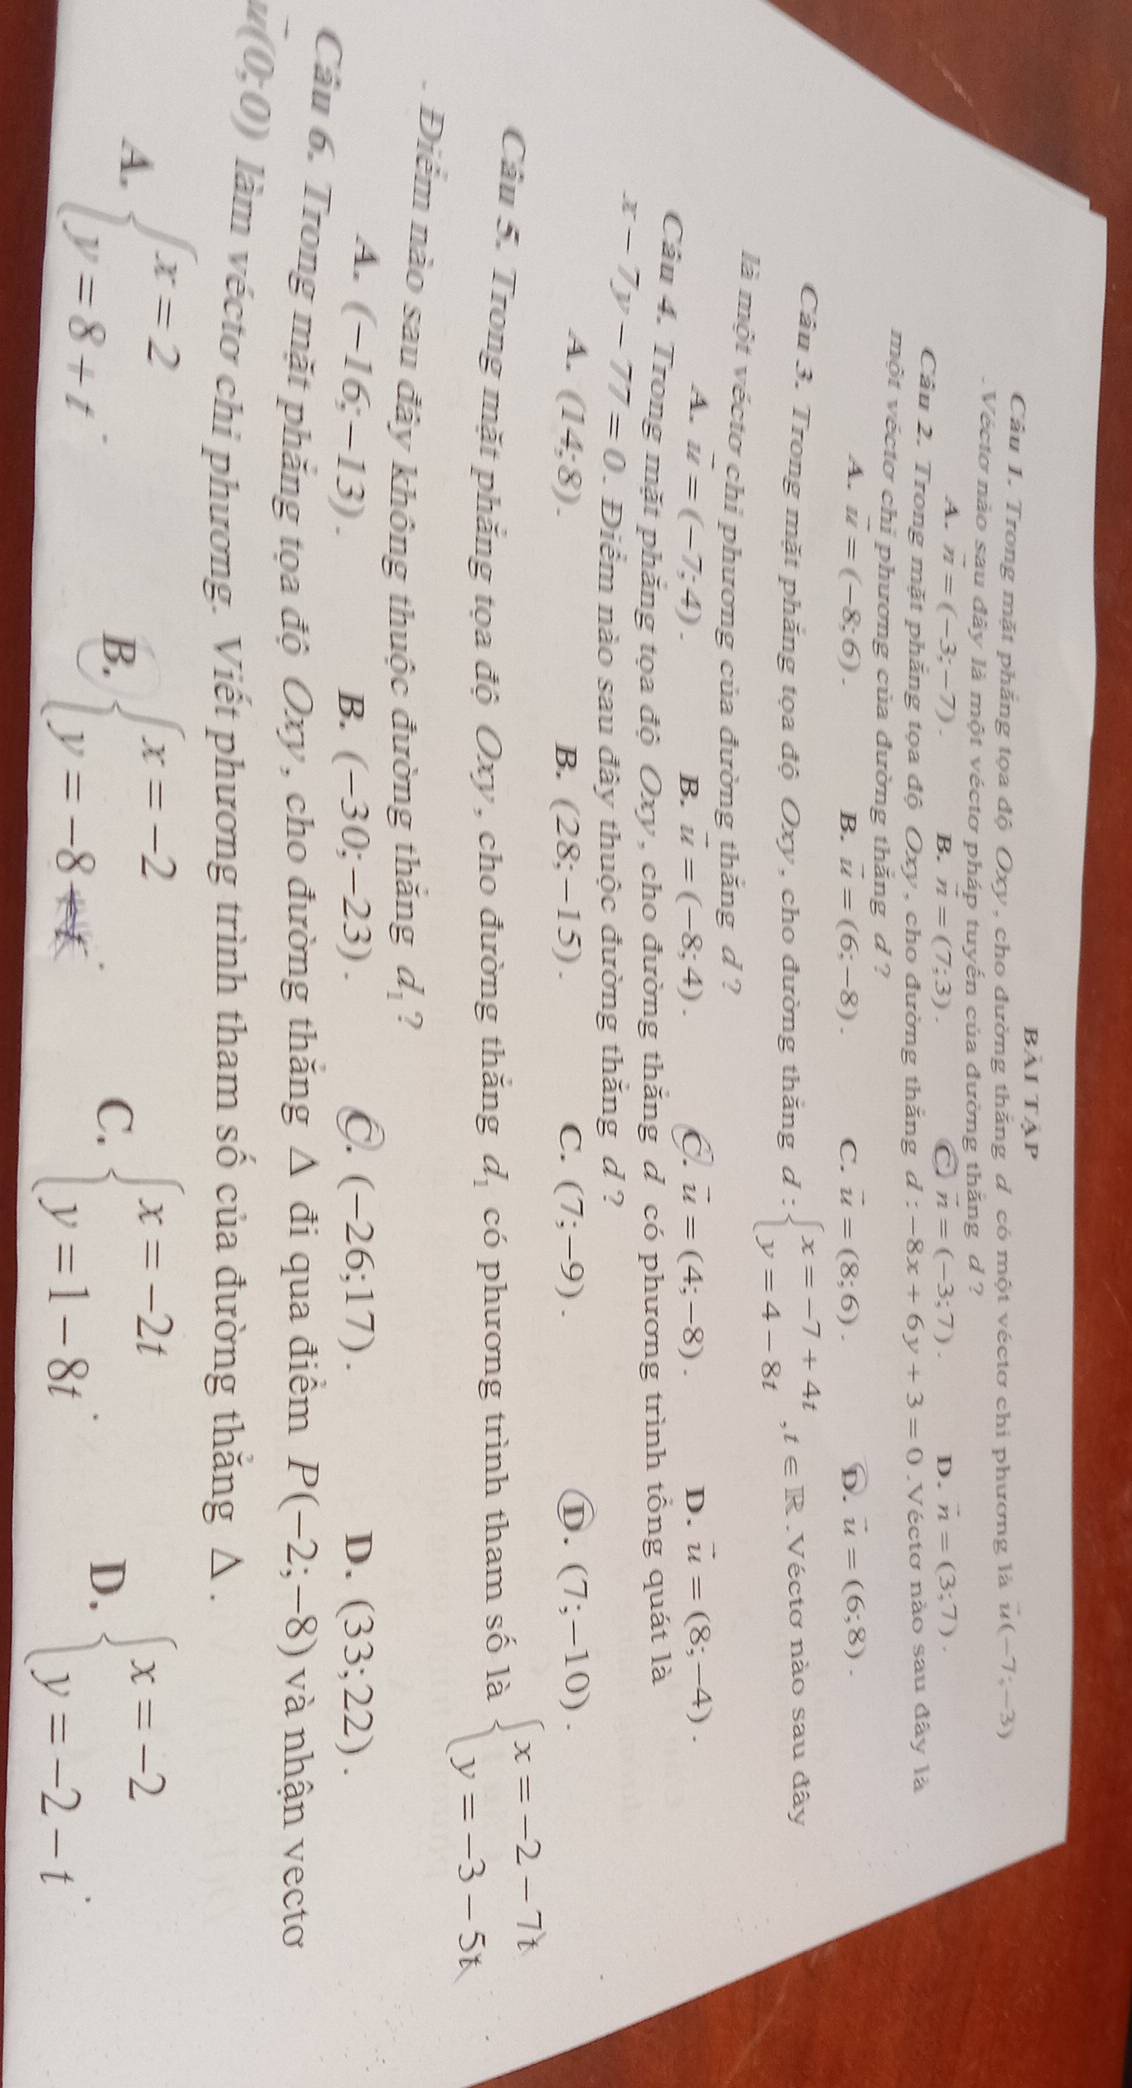 BÀI TẬP
Câu 1. Trong mặt phẳng tọa độ Oxy, cho đường thẳng d có một véctơ chỉ phương là u⃗(−7;−3)
. Véctơ nào sau đây là một véctơ pháp tuyến của đường thẳng d?
A. n⃗=(−3;−7). B. n⃗=(7;3). C. n⃗=(−3;7). D. n⃗=(3;7).
Câu 2. Trong mặt phẳng tọa độ Oxy, cho đường thẳng d:−8x+6y+3=0.Véctơ nào sau đây là
một véctơ chỉ phương của đường thẳng d?
A. u⃗=(−8;6). B. u⃗=(6;−8). C. u⃗=(8;6). D. u⃗=(6;8).
Câu 3. Trong mặt phẳng tọa độ Oxy, cho đường thẳng d:{x=−7+4t
y=4−8t ,t∈ℝ.Véctơ nào sau đây
là một véctơ chỉ phương của đường thẳng d?
A. u⃗=(−7;4). B. u⃗=(−8;4). C. u⃗=(4;−8). D. u⃗=(8;−4).
Câu 4. Trong mặt phẳng tọa độ Oxy, cho đường thẳng d có phương trình tổng quát là
x−7y−77=0. Điểm nào sau đây thuộc đường thẳng d?
A. (14;8). B. (28;−15). C. (7;−9). D. (7;−10).
Câu 5. Trong mặt phẳng tọa độ Oxy, cho đường thẳng d₁ có phương trình tham số là {x=−2−7t
y=−3−5t
. Điểm nào sau đây không thuộc đường thẳng d₁?
A. (−16;−13). B. (−30;−23). C. (−26;17). D. (33;22).
Câu 6. Trong mặt phẳng tọa độ Oxy, cho đường thẳng Δ đi qua điểm P(−2;−8) và nhận vectơ
u⃗(0;0) làm véctơ chỉ phương. Viết phương trình tham số của đường thẳng Δ.
A. {x=2 B. {x=−2 C. {x=−2t D. {x=−2
y=8+t. y=−8+t. y=1−8t. y=−2−t.